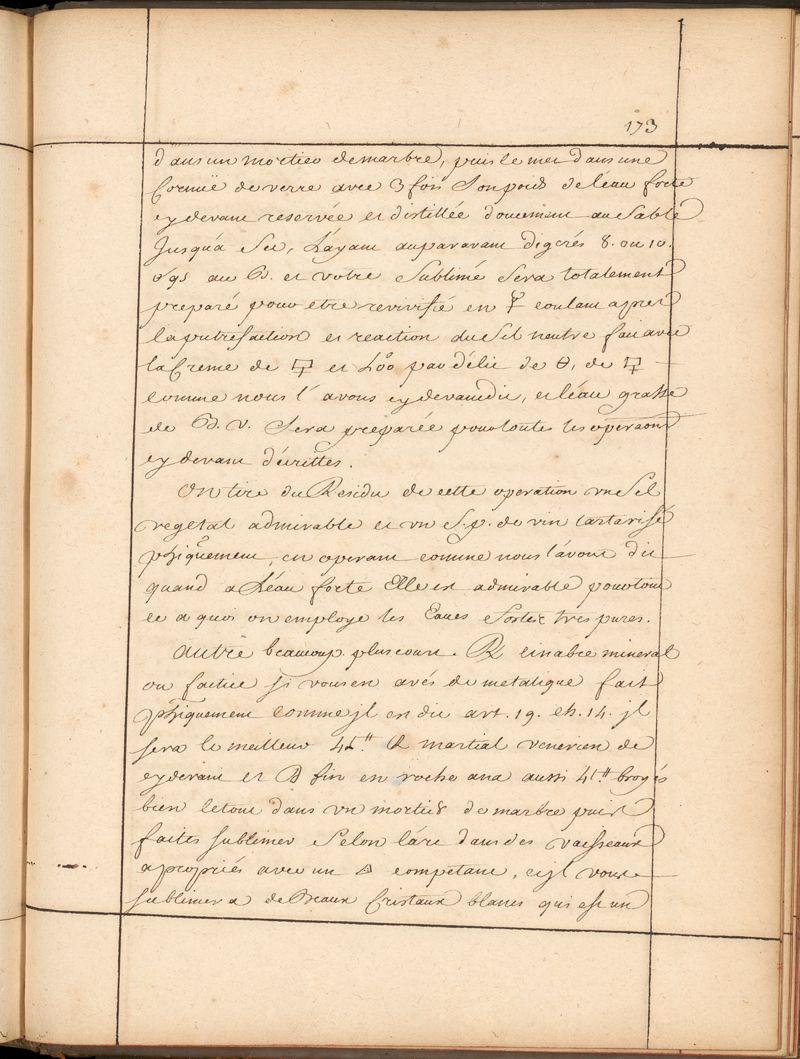 173
dans un mortier de marbre, puis le met dans une
Cornuë de verre avec 3 fois Son poids de l'eau forte
cy devant reservée et distillée doucement au Sable
Jusqu'a Sec, L'ayant auparavant digerés 8. ou 10.
au B. et votre Sublimé Sera totalement
preparé pour etre revivifié en ☿ coulant apres
la putrefaction et reaction du Sel neutre fait avec
la Creme de 🜿 et par délic de θ, de 🜿
comme nous l'avons cy devant dit, et l'eau grasse
de B. V. Sera preparée pour toutes les operaons
cy devant décrittes.
On tire du Residu de cette operation un Sel
vegetal admirable et vn S.p. de vin tartarisé
phiquement, en operant comme nous l'avons dit
quand a L'éau forte Elle est admirable pour tout
ce a quoi on employe les Eaues fortes tres pures.
Autre beaucoup plus court. ℞ cinabre mineral
ou factice si vous en avés de metalique fait
phiquement comme jl en dit art. 19. ch. 14. jl
sera le meilleur 4 martial venerien de
cy devant et fin en roche ana aussi 4 broyés
bien le tout dans vn mortier de marbre puis
faites sublimer Selon l'art dans des vaisseaux
apropriés avec un 🜂 competant, et jl vous
sublimera de Beaux Cristaux blancs qui est un